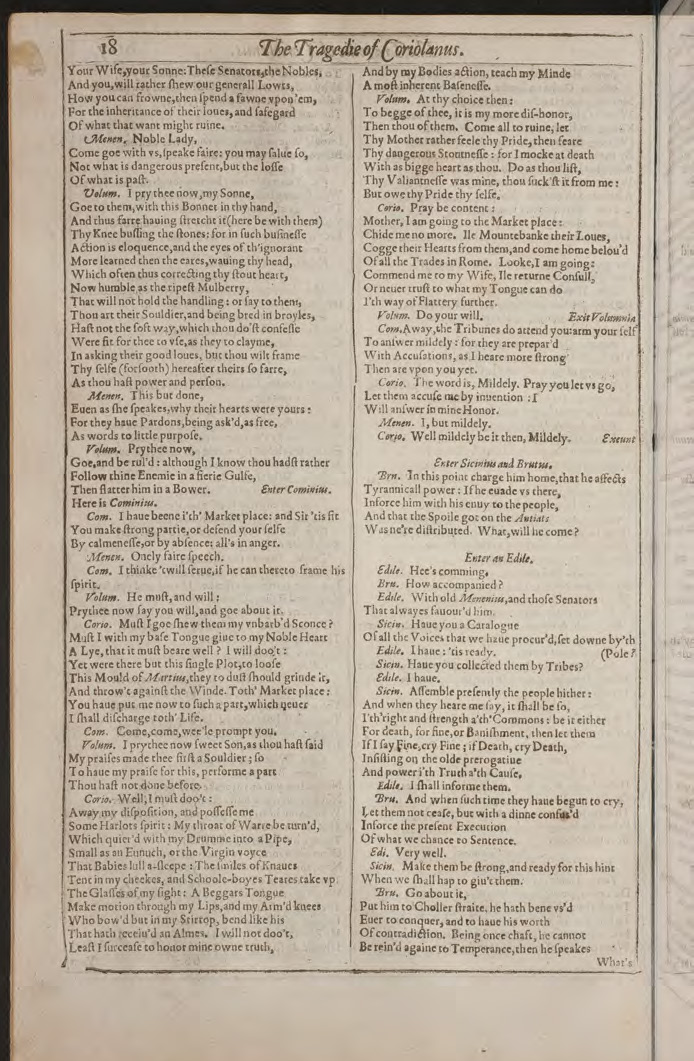 18
The Tragedie of Coriolanus.
Your Wife, your Sonne: These Senators, the Nobles,
And you, will rather shew our generall Lowts,
How you can frowne, then spend a fawne vpon 'em,
For the inheritance of their loues, and safegard
Of what that want might ruine.
Menen. Noble Lady,
Come goe with vs, speake faire: you may salue so,
Not what is dangerous present, but the losse
Of what is past.
Volum. I prythee now, my Sonne,
Goe to them, with this Bonnet in thy hand,
And thus farre hauing stretcht it (here be with them)
Thy Knee bussing the stones: for in such businesse
Action is eloquence, and the eyes of th'ignorant
More learned then the eares, wauing thy head,
Which often thus correcting thy stout heart,
Now humble as the ripest Mulberry,
That will not hold the handling: or say to them,
Thou art their Souldier, and being bred in broyles,
Hast not the soft way, which thou do'st confesse
Were fit for thee to vse, as they to clayme,
In asking their good loues, but thou wilt frame
Thy selfe (forsooth) hereafter theirs so farre,
As thou hast power and person.
Menen. This but done,
Euen as she speakes, why their hearts were yours:
For they haue Pardons, being ask'd, as free,
As words to little purpose.
Volum. Prythee now,
Goe, and be rul'd: although I know thou hadst rather
Follow thine Enemie in a fierie Gulfe,
Then flatter him in a Bower. Enter Cominius.
Here is Cominius.
Com. I haue beene i'th' Market place: and Sir 'tis fit
You make strong partie, or defend your selfe
By calmenesse, or by absence: all's in anger.
Menen. Onely faire speech.
Com. I thinke 'twill serue, if he can thereto frame his
spirit.
Volum. He must, and will:
Prythee now say you will, and goe about it.
Corio. Must I goe shew them my vnbarb'd Sconce?
Must I with my base Tongue giue to my Noble Heart
A Lye, that it must beare well? I will doo't:
Yet were there but this single Plot, to loose
This Mould of Martius, they to dust should grinde it,
And throw't against the Winde. Toth' Market place:
You haue put me now to such a part, which neuer
I shall discharge toth' Life.
Com. Come, come, wee'le prompt you.
Volum. I prythee now sweet Son, as thou hast said
My praises made thee first a Souldier; so
To haue my praise for this, performe a part
Thou hast not done before.
Corio. Well, I must doo't:
Away my disposition, and possesse me
Some Harlots spirit: My throat of Warre be turn'd,
Which quier'd with my Drumme into a Pipe,
Small as an Eunuch, or the Virgin voyce
That Babies lull a-sleepe: The smiles of Knaues
Tent in my cheekes, and Schoole-boyes Teares take vp
The Glasses of my sight: A Beggars Tongue
Make motion through my Lips, and my Arm'd knees
Who bow'd but in my Stirrop, bend like his
That hath receiu'd an Almes. I will not doo't,
Least I surcease to honor mine owne truth,
And by my Bodies action, teach my Minde
A most inherent Basenesse.
Volum. At thy choice then:
To begge of thee, it is my more dis-honor,
Then thou of them. Come all to ruine, let
Thy Mother rather feele thy Pride, then feare
Thy dangerous Stoutnesse: for I mocke at death
With as bigge heart as thou. Do as thou list,
Thy Valiantnesse was mine, thou suck'st it from me:
But owe thy Pride thy selfe.
Corio. Pray be content:
Mother, I am going to the Market place:
Chide me no more. Ile Mountebanke their Loues,
Cogge their Hearts from them, and come home belou'd
Of all the Trades in Rome. Looke, I am going:
Commend me to my Wife, Ile returne Consull,
Or neuer trust to what my Tongue can do
I'th way of Flattery further.
Volum. Do your will. Exit Volumnia
Com. Away, the Tribunes do attend you: arm your self
To answer mildely: for they are prepar'd
With Accusations, as I heare more strong
Then are vpon you yet.
Corio. The word is, Mildely. Pray you let vs go,
Let them accuse me by inuention: I
Will answer in mine Honor.
Menen. I, but mildely.
Corio. Well mildely be it then, Mildely. Exeunt
Enter Sicinius and Brutus.
Bru. In this point charge him home, that he affects
Tyrannicall power: If he euade vs there,
Inforce him with his enuy to the people,
And that the Spoile got on the Antiats
Was ne're distributed. What, will he come?
Enter an Edile.
Edile. Hee's comming.
Bru. How accompanied?
Edile. With old Menenius, and those Senators
That alwayes fauour'd him.
Sicin. Haue you a Catalogue
Of all the Voices that we haue procur'd, set downe by'th
Edile. I haue: 'tis ready. (Pole?
Sicin. Haue you collected them by Tribes?
Edile. I haue.
Sicin. Assemble presently the people hither:
And when they heare me say, it shall be so,
I'th'right and strength a'th'Commons: be it either
For death, for fine, or Banishment, then let them
If I say Fine, cry Fine; if Death, cry Death,
Insisting on the olde prerogatiue
And power i'th Truth a'th Cause.
Edile. I shall informe them.
Bru. And when such time they haue begun to cry,
Let them not cease, but with a dinne confus'd
Inforce the present Execution
Of what we chance to Sentence.
Edi. Very well.
Sicin. Make them be strong, and ready for this hint
When we shall hap to giu't them.
Bru. Go about it,
Put him to Choller straite, he hath bene vs'd
Euer to conquer, and to haue his worth
Of contradiction. Being once chaft, he cannot
Be rein'd againe to Temperance, then he speakes
What's